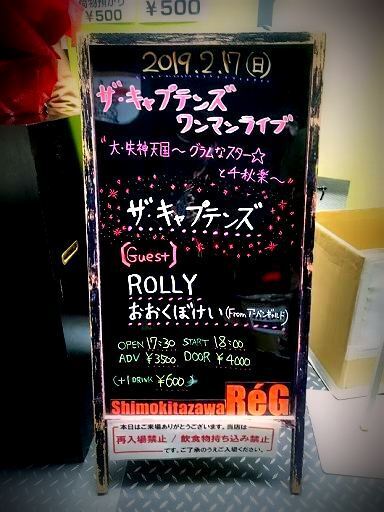 荷物預かり
¥500
¥500
2019.2.17(日)
ザ・キャプテンズ
ワンマンライブ
"大・失神天国〜グラムなスター☆
と千秋楽〜
ザ・キャプテンズ
[Guest]
ROLLY
おおくぼけい(From アーバンギャルド)
OPEN 17:30 START 18:00
ADV ¥3500 DOOR ¥4000
(+1 DRINK ¥600)
Shimokitazawa RéG
本日はご来場ありがとうございます。当店は
再入場禁止 / 飲食物持ち込み禁止
です。ご了承のうえご入場ください。